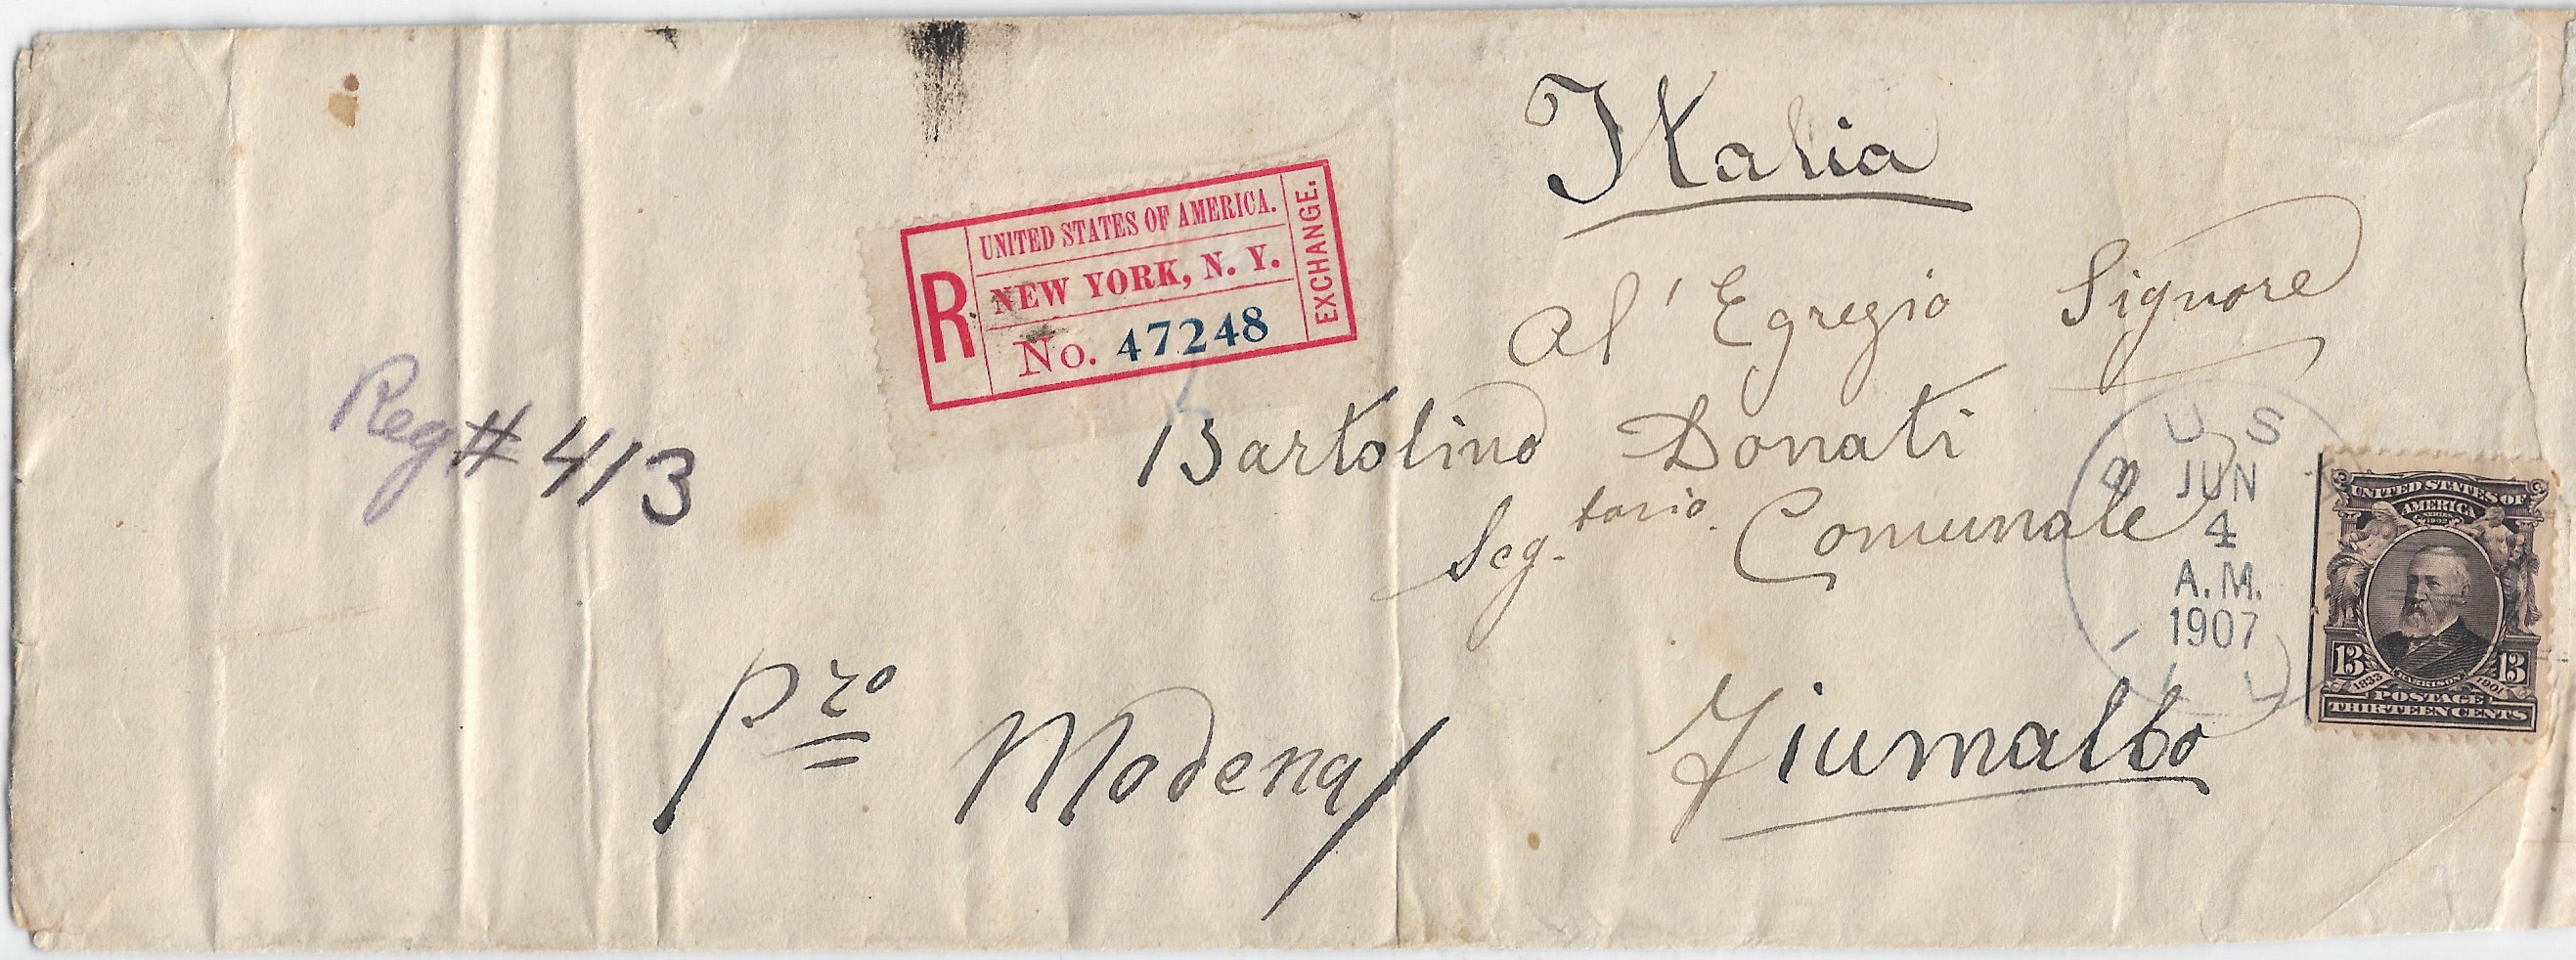 Italia
al' Egregio Signore
Bartolino Donati
Seg.tario. Comunale
Fiumalbo
Pro Modena
Reg # 413
R
UNITED STATES OF AMERICA.
NEW YORK, N. Y.
No. 47248
EXCHANGE.
U S
JUN
4
A.M.
1907
ILL
UNITED STATES OF
AMERICA
SERIES 1902
13 13
1833 HARRISON 1901
POSTAGE
THIRTEEN CENTS